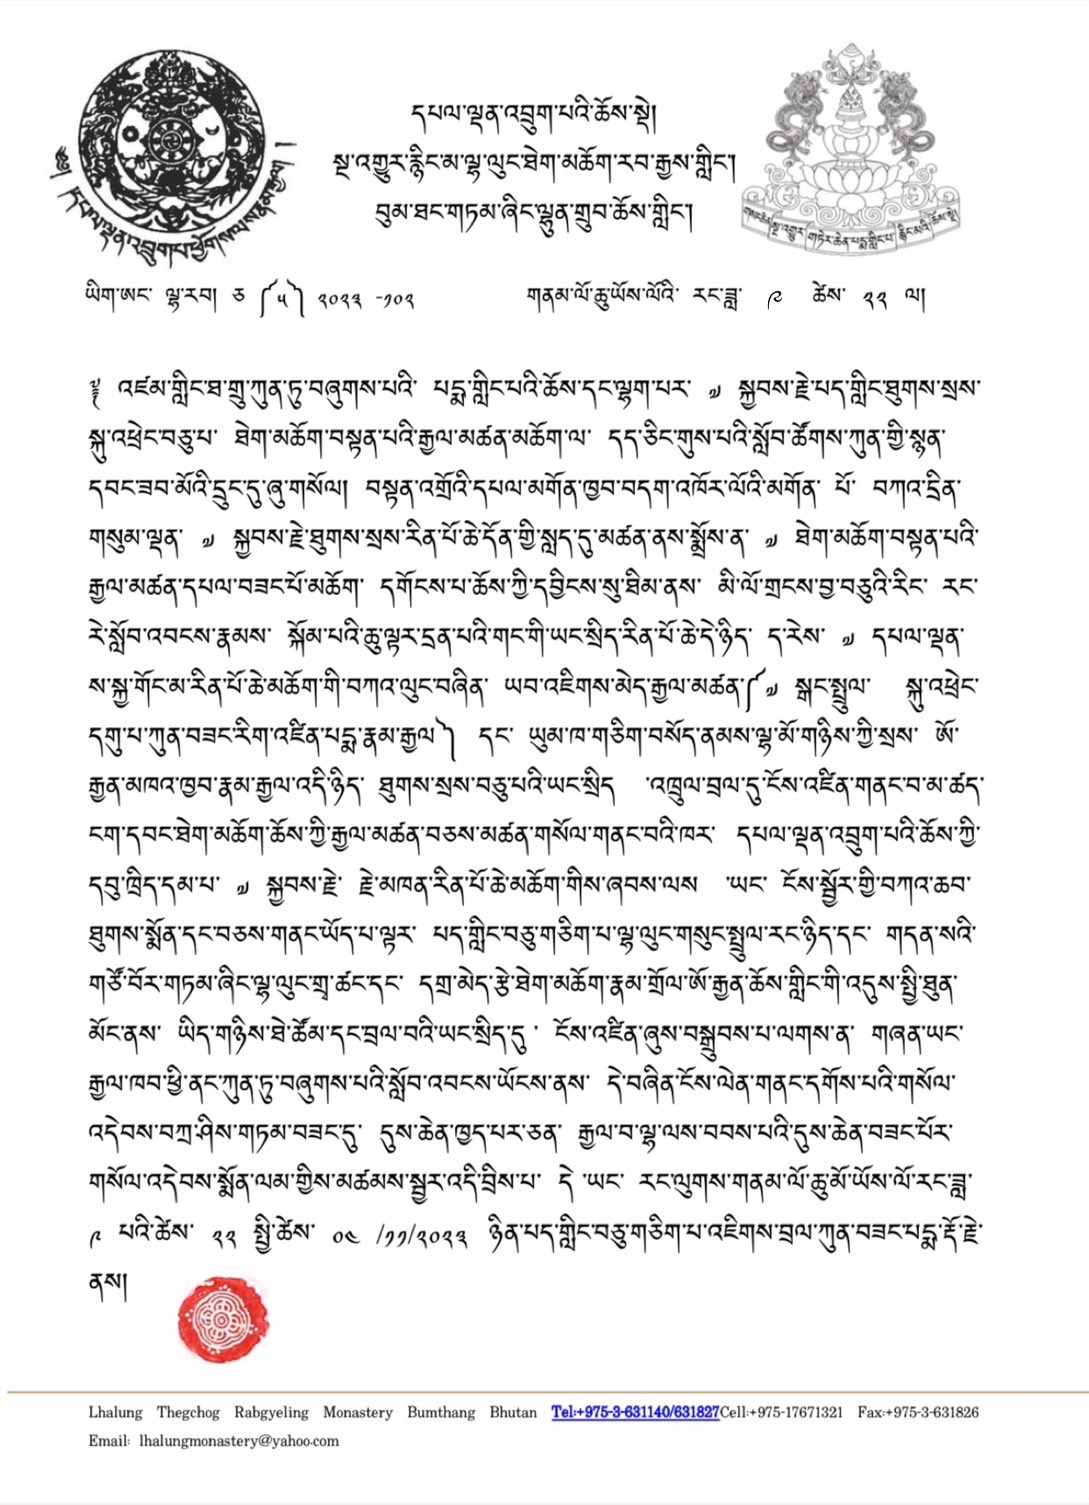 དཔལ་ལྡན་འབྲུག་པའི་ཆོས་སྡེ།
སྔ་འགྱུར་རྙིང་མ་ལྷ་ལུང་ཐེག་མཆོག་རབ་རྒྱས་གླིང་།
བུམ་ཐང་གཏམ་ཞིང་ལྷུན་གྲུབ་ཆོས་གླིང་།
༄༅། །དཔལ་ལྡན་འབྲུག་པ་ཕྱོགས་ལས་རྣམ་རྒྱལ།
གསང་ཆེན་སྔ་འགྱུར་གཏེར་ཆེན་པདྨ་གླིང་པ་རྙིང་མའི་ཆོས་སྡེ།
ཡིག་ཨང་ ལྷ་རབ། ཅ ༼༥༽ ༢༠༢༣ -༡༠༢ གནམ་ལོ་ཆུ་ཡོས་ལོའི་ རང་ཟླ་ ༩ ཚེས་ ༢༢ ལ།
༉ འཛམ་གླིང་ཐ་གྲུ་ཀུན་ཏུ་བཞུགས་པའི་ པདྨ་གླིང་པའི་ཆོས་དང་ལྷག་པར་ ༧ སྐྱབས་རྗེ་པད་གླིང་ཐུགས་སྲས་
སྐུ་འཕྲེང་བཅུ་པ་ ཐེག་མཆོག་བསྟན་པའི་རྒྱལ་མཚན་མཆོག་ལ་ དད་ཅིང་གུས་པའི་སློབ་ཚོགས་ཀུན་གྱི་སྙན་
དབང་ཟབ་མོའི་དྲུང་དུ་ཞུ་གསོལ། བསྟན་འགྲོའི་དཔལ་མགོན་ཁྱབ་བདག་འཁོར་ལོའི་མགོན་ པོ་ བཀའ་དྲིན་
གསུམ་ལྡན་ ༧ སྐྱབས་རྗེ་ཐུགས་སྲས་རིན་པོ་ཆེ་དོན་གྱི་སླད་དུ་མཚན་ནས་སྨྲོས་ན་ ༧ ཐེག་མཆོག་བསྟན་པའི་
རྒྱལ་མཚན་དཔལ་བཟང་པོ་མཆོག་ དགོངས་པ་ཆོས་ཀྱི་དབྱིངས་སུ་ཐིམ་ནས་ མི་ལོ་གྲངས་བྱ་བཅུའི་རིང་ རང་
རེ་སློབ་འབངས་རྣམས་ སྐོམ་པའི་ཆུ་ལྟར་དྲན་པའི་གང་གི་ཡང་སྲིད་རིན་པོ་ཆེ་དེ་ཉིད་ ད་རེས་ ༧ དཔལ་ལྡན་
ས་སྐྱ་གོང་མ་རིན་པོ་ཆེ་མཆོག་གི་བཀའ་ལུང་བཞིན་ ཡབ་འཇིགས་མེད་རྒྱལ་མཚན་༼༧ སྒང་སྤྲུལ་ སྐུ་འཕྲེང་
དགུ་པ་ཀུན་བཟང་རིག་འཛིན་པདྨ་རྣམ་རྒྱལ༽ དང་ ཡུམ་ཁ་གཅིག་བསོད་ནམས་ལྷ་མོ་གཉིས་ཀྱི་སྲས་ ཨོ་
རྒྱན་མཁའ་ཁྱབ་རྣམ་རྒྱལ་འདི་ཉིད་ ཐུགས་སྲས་བཅུ་པའི་ཡང་སྲིད ་འཁྲུལ་བྲལ་དུ་ངོས་འཛིན་གནང་བ་མ་ཚད་
ངག་དབང་ཐེག་མཆོག་ཆོས་ཀྱི་རྒྱལ་མཚན་བཅས་མཚན་གསོལ་གནང་བའི་ཁར་ དཔལ་ལྡན་འབྲུག་པའི་ཆོས་ཀྱི་
དབུ་ཁྲིད་དམ་པ་ ༧ སྐྱབས་རྗེ་ རྗེ་མཁན་རིན་པོ་ཆེ་མཆོག་གིས་ཞབས་ལས ་ཡང་ ངོས་སྦྱོར་གྱི་བཀའ་ཆབ་
ཐུགས་སྨོན་དང་བཅས་གནང་ཡོད་པ་ལྟར་ པད་གླིང་བཅུ་གཅིག་པ་ལྷ་ལུང་གསུང་སྤྲུལ་རང་ཉིད་དང་ གདན་སའི་
གཙོ་བོར་གཏམ་ཞིང་ལྷ་ལུང་གྲྭ་ཚང་དང་ དགྲ་མེད་རྩེ་ཐེག་མཆོག་རྣམ་གྲོལ་ཨོ་རྒྱན་ཆོས་གླིང་གི་འདུས་སྤྱི་ཐུན་
མོང་ནས་ ཡིད་གཉིས་ཐེ་ཚོམ་དང་བྲལ་བའི་ཡང་སྲིད་དུ་ ངོས་འཛིན་ཞུས་བསྒྲུབས་པ་ལགས་ན་ གཞན་ཡང་
རྒྱལ་ཁབ་ཕྱི་ནང་ཀུན་ཏུ་བཞུགས་པའི་སློབ་འབངས་ཡོངས་ནས་ དེ་བཞིན་ངོས་ལེན་གནང་དགོས་པའི་གསོལ་
འདེབས་བཀྲ་ཤིས་གཏམ་བཟང་དུ་ དུས་ཆེན་ཁྱད་པར་ཅན་ རྒྱལ་བ་ལྷ་ལས་བབས་པའི་དུས་ཆེན་བཟང་པོར་
གསོལ་འདེབས་སྨོན་ལམ་གྱིས་མཚམས་སྦྱར་འདི་བྲིས་པ་ དེ ་ཡང་ རང་ལུགས་གནམ་ལོ་ཆུ་མོ་ཡོས་ལོ་རང་ཟླ་
༩ པའི་ཚེས་ ༢༢ སྤྱི་ཚེས་ ༠༤ /༡༡/༢༠༢༣ ཉིན་པད་གླིང་བཅུ་གཅིག་པ་འཇིགས་བྲལ་ཀུན་བཟང་པདྨ་རྡོ་རྗེ་
ནས།
Lhalung Thegchog Rabgyeling Monastery Bumthang Bhutan Tel:+975-3-631140/631827Cell:+975-17671321 Fax:+975-3-631826
Email: lhalungmonastery@yahoo.com